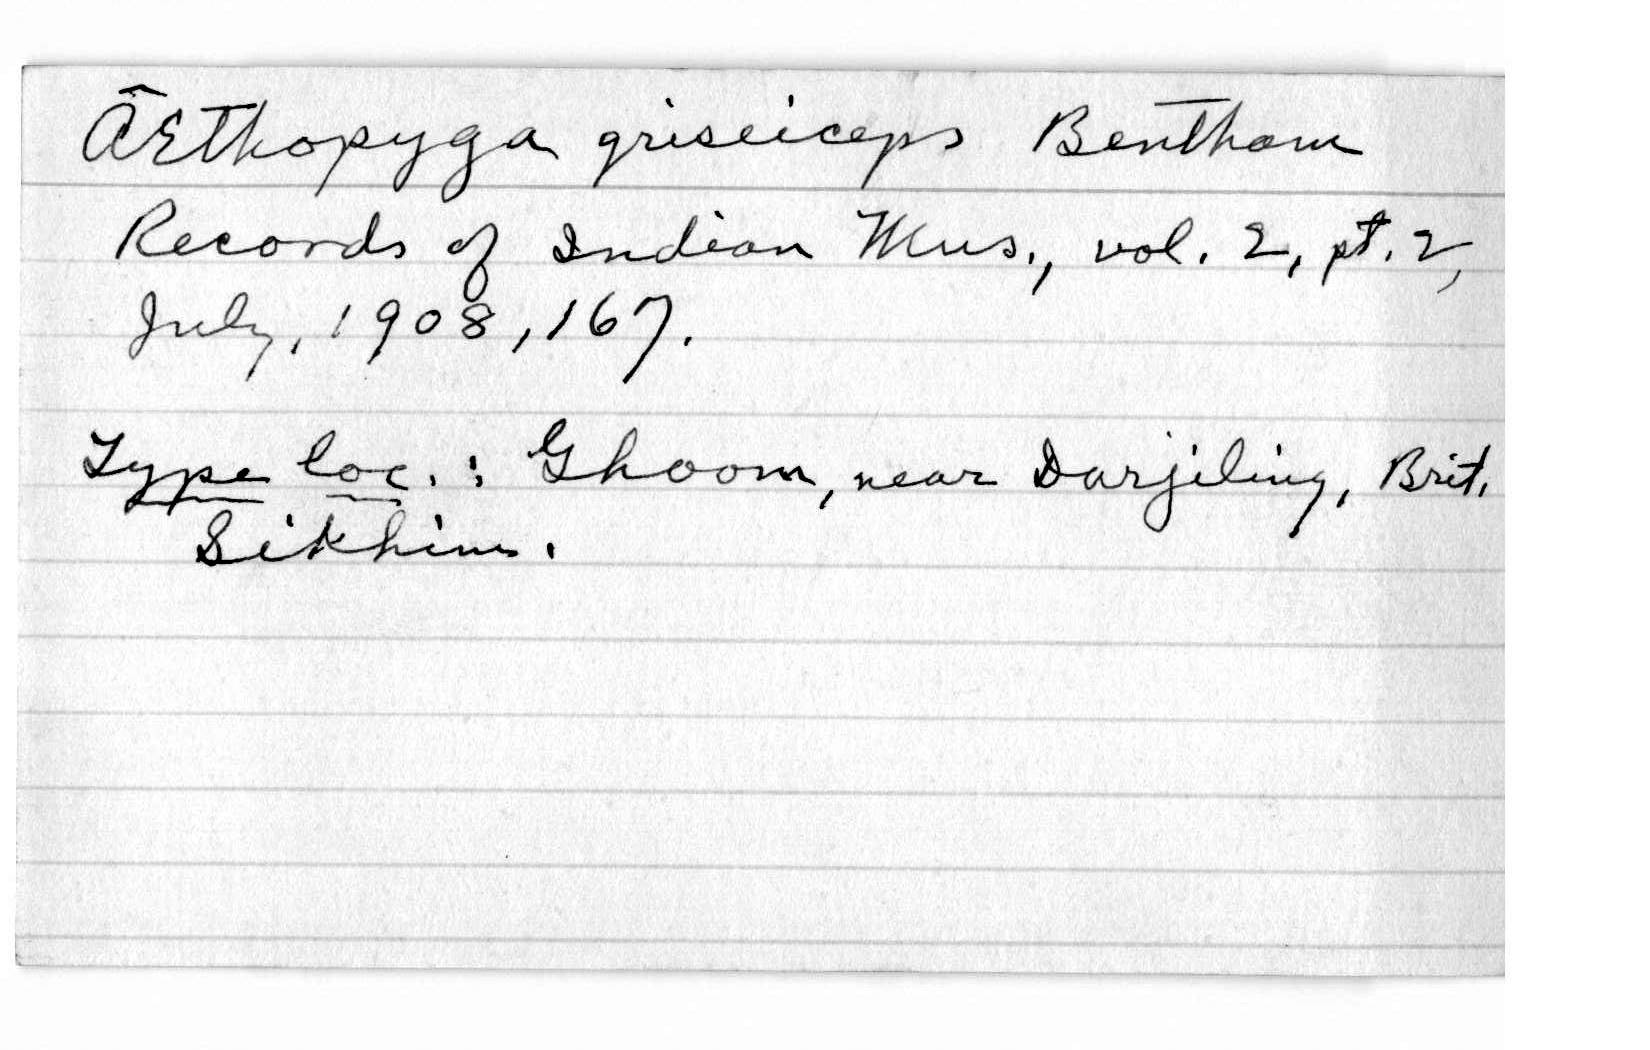 Æthopyga griseiceps Bentham
Records of Indian Mus., vol. 2, pt. 2,
July, 1908, 167.
Type loc.: Ghoom, near Darjiling, Brit.
Sikhim.